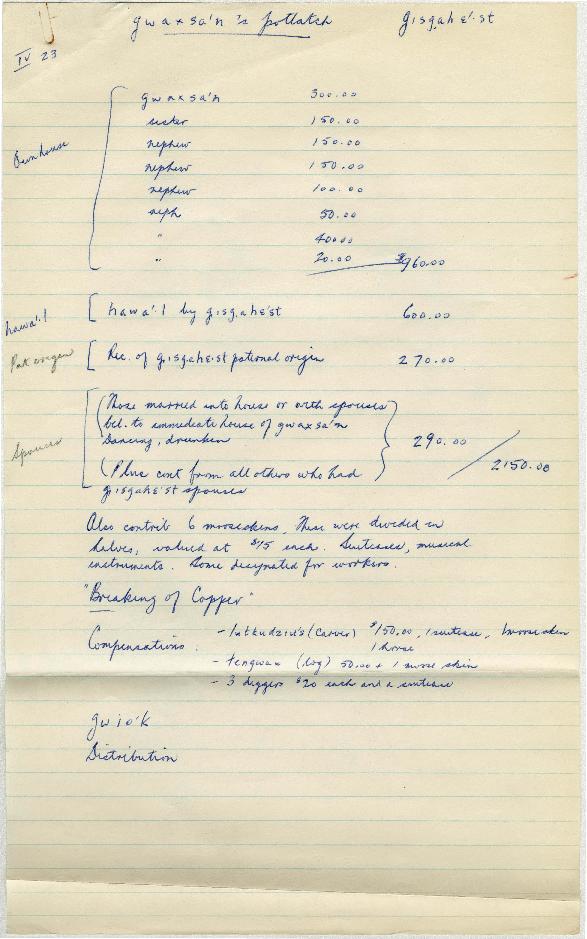 gwaxsa'n's potlatch gisgahe'st
IV 23
Own house
gwaxsa'n 300.00
sister 150.00
nephew 150.00
nephew 150.00
nephew 100.00
neph 50.00
" 40.00
" 20.00 $960.00
hawa'l [hawa'l by gisgahe'st 600.00
Pat origin [Rec. of gisgahe'st paternal origin 270.00
Spouses
(Those married into house or with spouses
bel. to immediate house of gwaxsa'n
Dancing, drunken 290.00
(Plus cont from all others who had / 2150.00
gisgahe'st spouses
Also contrib 6 mooseskins. These were divided in
halves, valued at $15 each. Suitcases, musical
instruments. Some designated for workers.
"Breaking of Copper"
Compensations: - (Carver) $150.00, 1 suitcase, 1 moose skin
1 horse
- tengwax (log) 50.00 + 1 moose skin
- 3 diggers $20 each and a suitcase
gwio'k
Distribution